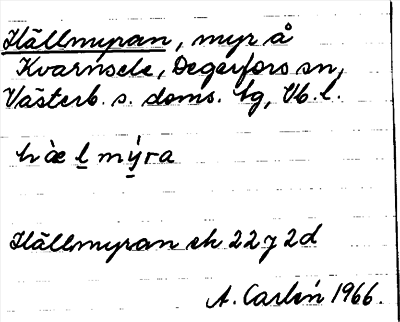 Hällmyran, myr å
Kvarnsele, Degerfors sn,
Västerb. s. doms. tg, Vb. l.
hàe l mýra
Hällmyran ek 22 J 2d
A. Carlén 1966.